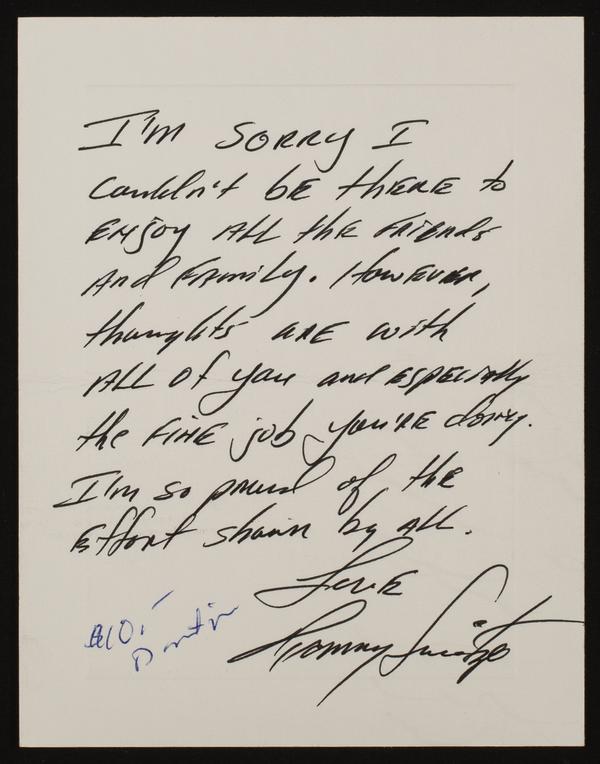 I'm SORRY I
couldn't be there to
ENjoy ALL the friends
And family. However,
thoughts are with
ALL of you and especially
the fine job you're doing.
I'm so proud of the
effort shown by ALL.
Love
Tommy